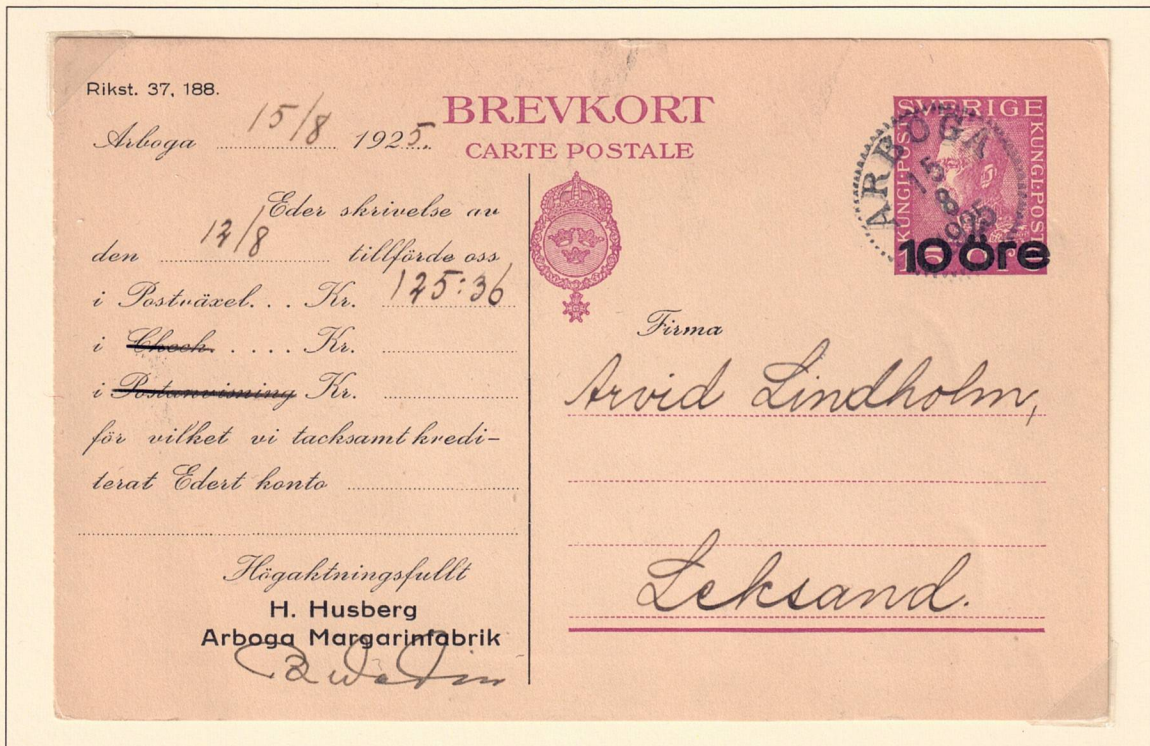 Rikst. 37, 188.
Arboga 15/8 1925.
Eder skrivelse av
den 12/8 tillförde oss
i Postväxel. . . Kr. 125:36
i Check. . . . . Kr.
i Postanvisning Kr.
för vilket vi tacksamt kredi-
terat Edert konto
Högaktningsfullt
H. Husberg
Arboga Margarinfabrik
BREVKORT
CARTE POSTALE
SVERIGE
KUNGL·POST
KUNGL·POST
10 öre
ARBOGA
15
8
1925
Firma
Arvid Lindholm,
Leksand.